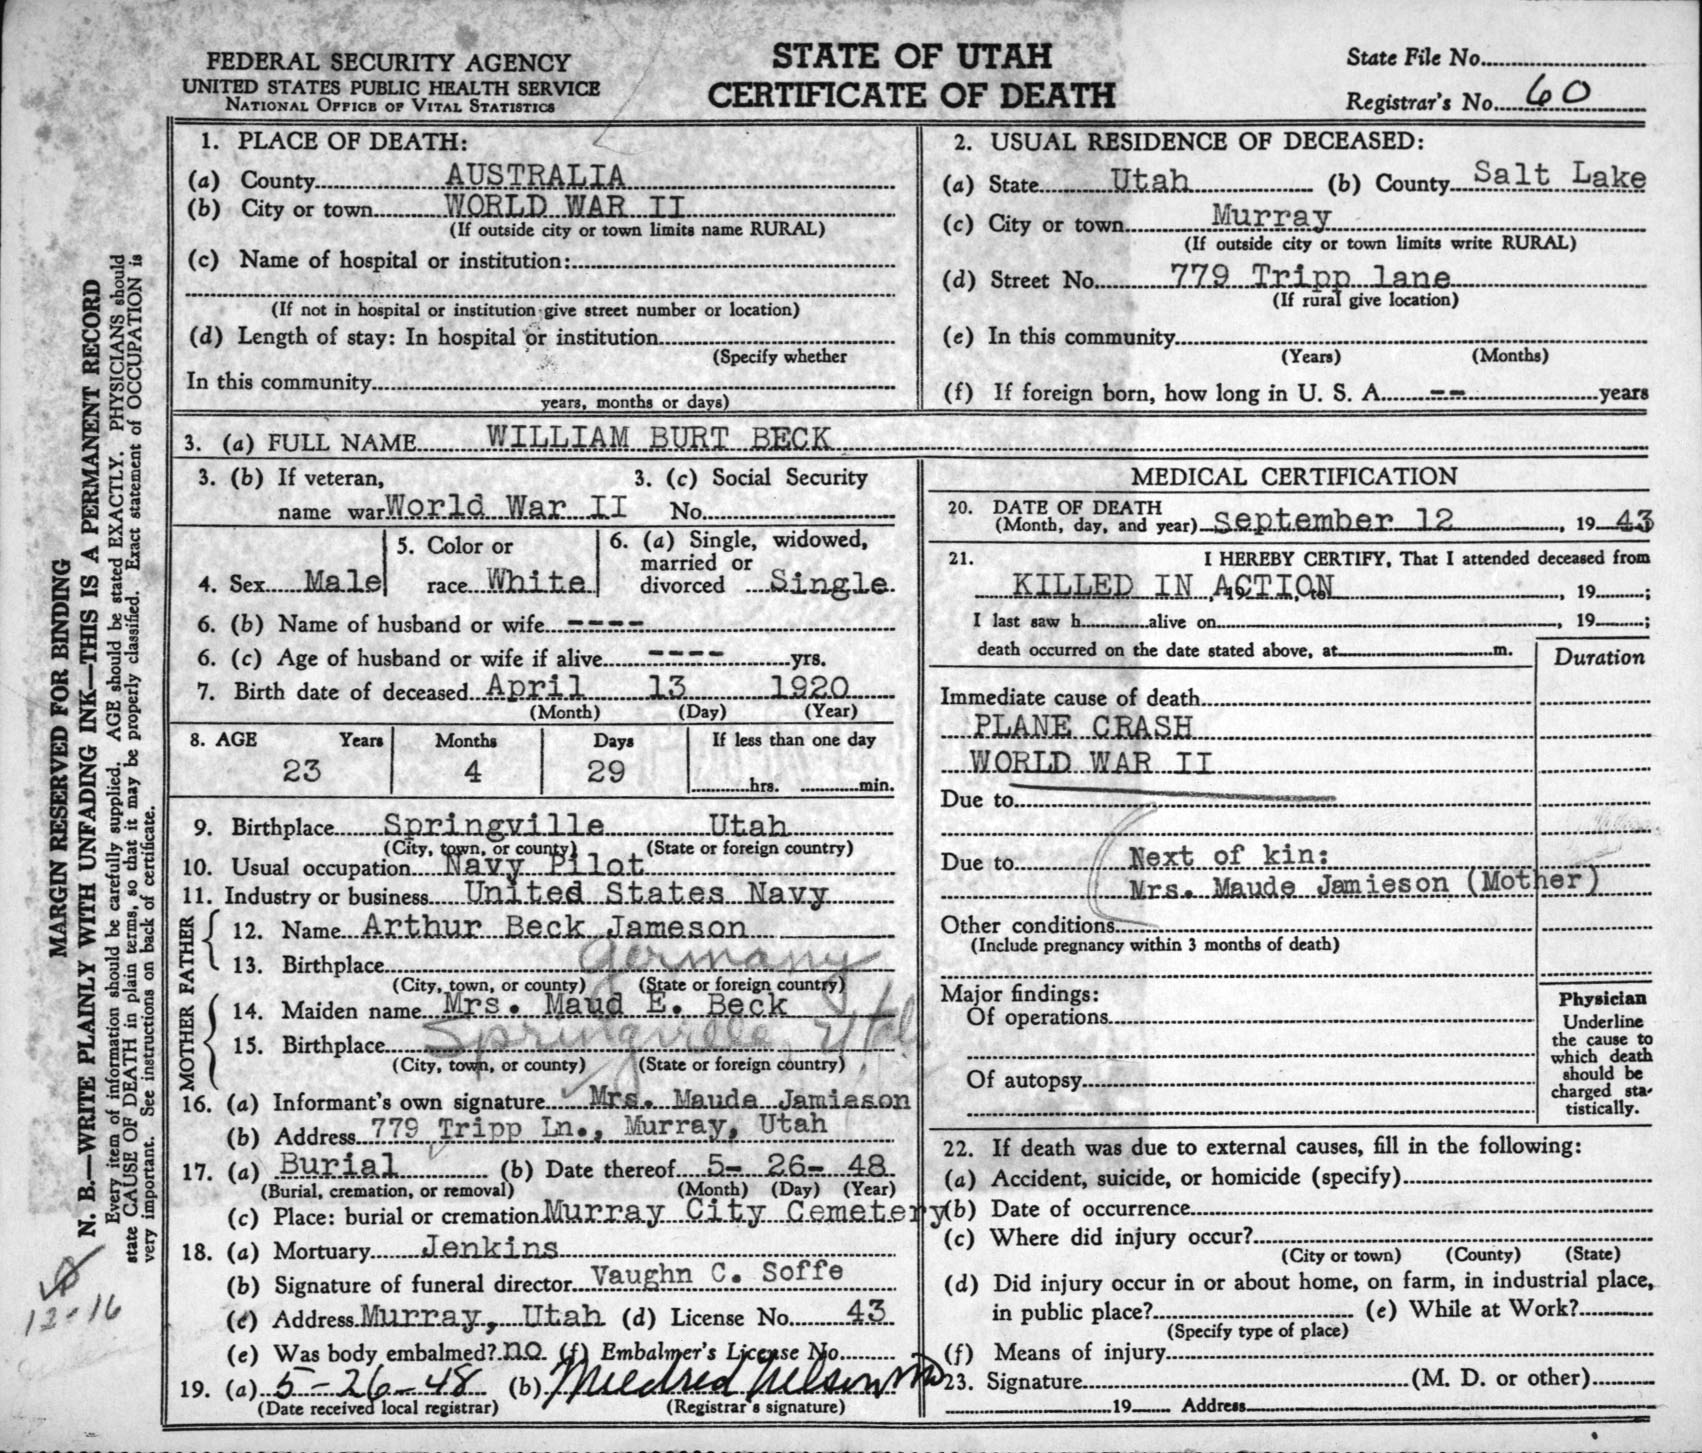 FEDERAL SECURITY AGENCY
UNITED STATES PUBLIC HEALTH SERVICE
NATIONAL OFFICE OF VITAL STATISTICS
STATE OF UTAH
CERTIFICATE OF DEATH
State File No.
Registrar's No. 60
MARGIN RESERVED FOR BINDING
N. B.—WRITE PLAINLY WITH UNFADING INK—THIS IS A PERMANENT RECORD
Every item of information should be carefully supplied. AGE should be stated EXACTLY. PHYSICIANS should
state CAUSE OF DEATH in plain terms, so that it may be properly classified. Exact statement of OCCUPATION is
very important. See instructions on back of certificate.
12-16
1. PLACE OF DEATH:
(a) County AUSTRALIA
(b) City or town WORLD WAR II
(If outside city or town limits name RURAL)
(c) Name of hospital or institution:
(If not in hospital or institution give street number or location)
(d) Length of stay: In hospital or institution
(Specify whether
In this community
years, months or days)
2. USUAL RESIDENCE OF DECEASED:
(a) State Utah (b) County Salt Lake
(c) City or town Murray
(If outside city or town limits write RURAL)
(d) Street No. 779 Tripp lane
(If rural give location)
(e) In this community
(Years) (Months)
(f) If foreign born, how long in U. S. A. -- years
3. (a) FULL NAME WILLIAM BURT BECK
3. (b) If veteran, 3. (c) Social Security
name war World War II No.
4. Sex Male
5. Color or
race White
6. (a) Single, widowed,
married or
divorced Single
6. (b) Name of husband or wife ----
6. (c) Age of husband or wife if alive ---- yrs.
7. Birth date of deceased April 13 1920
(Month) (Day) (Year)
8. AGE Years Months Days If less than one day
23 4 29 hrs. min.
9. Birthplace Springville Utah
(City, town, or county) (State or foreign country)
10. Usual occupation Navy Pilot
11. Industry or business United States Navy
FATHER
12. Name Arthur Beck Jameson
13. Birthplace Germany
(City, town, or county) (State or foreign country)
MOTHER
14. Maiden name Mrs. Maud E. Beck
15. Birthplace Springville, Utah
(City, town, or county) (State or foreign country)
16. (a) Informant's own signature Mrs. Maude Jamieson
(b) Address 779 Tripp Ln., Murray, Utah
17. (a) Burial (b) Date thereof 5- 26- 48
(Burial, cremation, or removal) (Month) (Day) (Year)
(c) Place: burial or cremation Murray City Cemetery
18. (a) Mortuary Jenkins
(b) Signature of funeral director Vaughn C. Soffe
(c) Address Murray, Utah (d) License No. 43
(e) Was body embalmed? no (f) Embalmer's License No.
19. (a) 5-26-48 (b) Mildred Nelson MD
(Date received local registrar) (Registrar's signature)
MEDICAL CERTIFICATION
20. DATE OF DEATH
(Month, day, and year) September 12, 19 43
21. I HEREBY CERTIFY, That I attended deceased from
KILLED IN ACTION, 19 to, 19;
I last saw h alive on, 19;
death occurred on the date stated above, at m.
Duration
Immediate cause of death
PLANE CRASH
WORLD WAR II
Due to
Due to Next of kin:
Mrs. Maude Jamieson (Mother)
Other conditions
(Include pregnancy within 3 months of death)
Major findings:
Of operations
Of autopsy
Physician
Underline
the cause to
which death
should be
charged sta-
tistically.
22. If death was due to external causes, fill in the following:
(a) Accident, suicide, or homicide (specify)
(b) Date of occurrence
(c) Where did injury occur?
(City or town) (County) (State)
(d) Did injury occur in or about home, on farm, in industrial place,
in public place? (e) While at Work?
(Specify type of place)
(f) Means of injury
23. Signature (M. D. or other)
19 Address